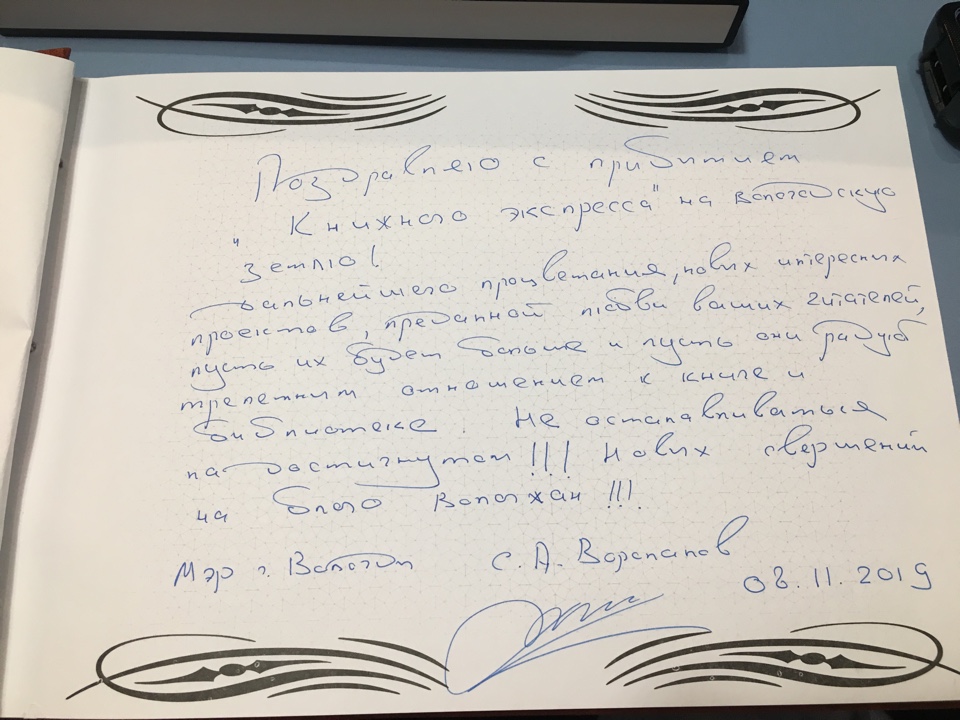 Поздравляю с прибытием
"Книжного экспресса" на вологодскую
землю!
Дальнейшего процветания, новых интересных
проектов, преданной любви ваших читателей,
пусть их будет больше и пусть они радуют
трепетным отношением к книге и
библиотеке. Не останавливаться
на достигнутом!!! Новых свершений
на благо Вологжан!!!
Мэр г. Вологды С. А. Воропанов
08.11.2019